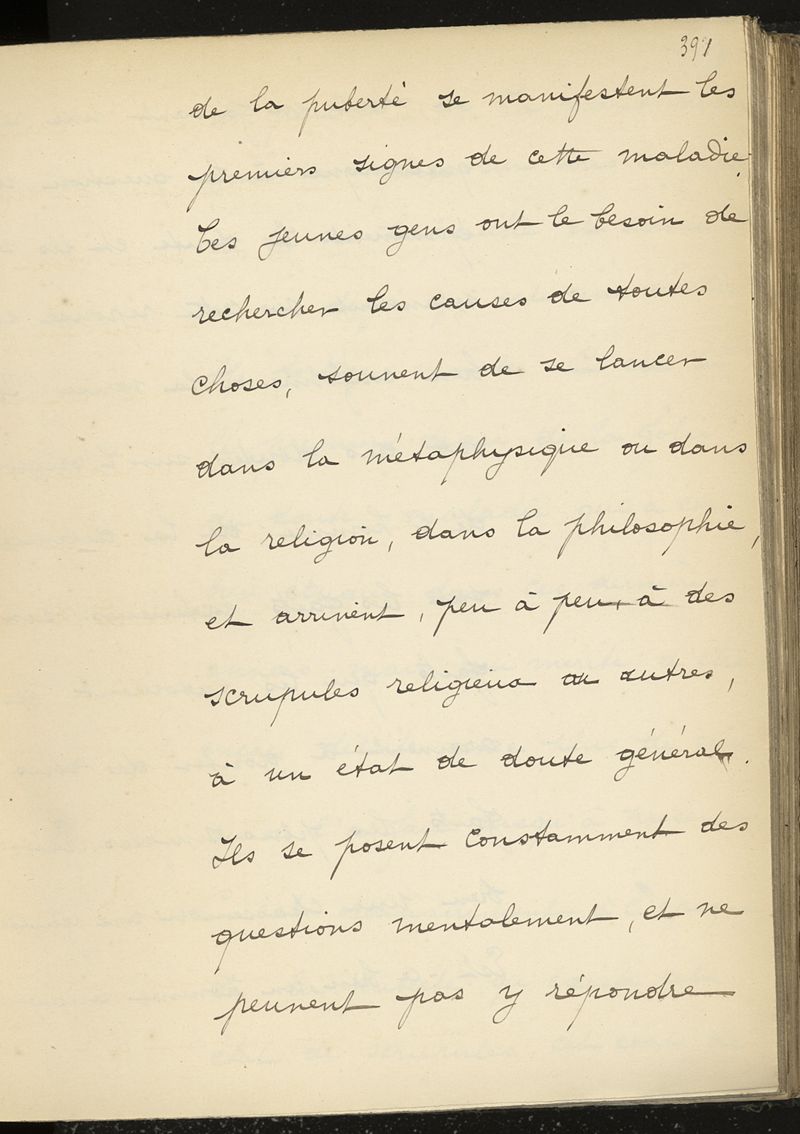 391
de la puberté se manifestent les
premiers signes de cette maladie.
Ces jeunes gens ont le besoin de
rechercher les causes de toutes
choses, souvent de se lancer
dans la métaphysique ou dans
la religion, dans la philosophie,
et arrivent, peu à peu, à des
scrupules religieux ou autres,
à un état de doute général.
Ils se posent constamment des
questions mentalement, et ne
peuvent pas y répondre